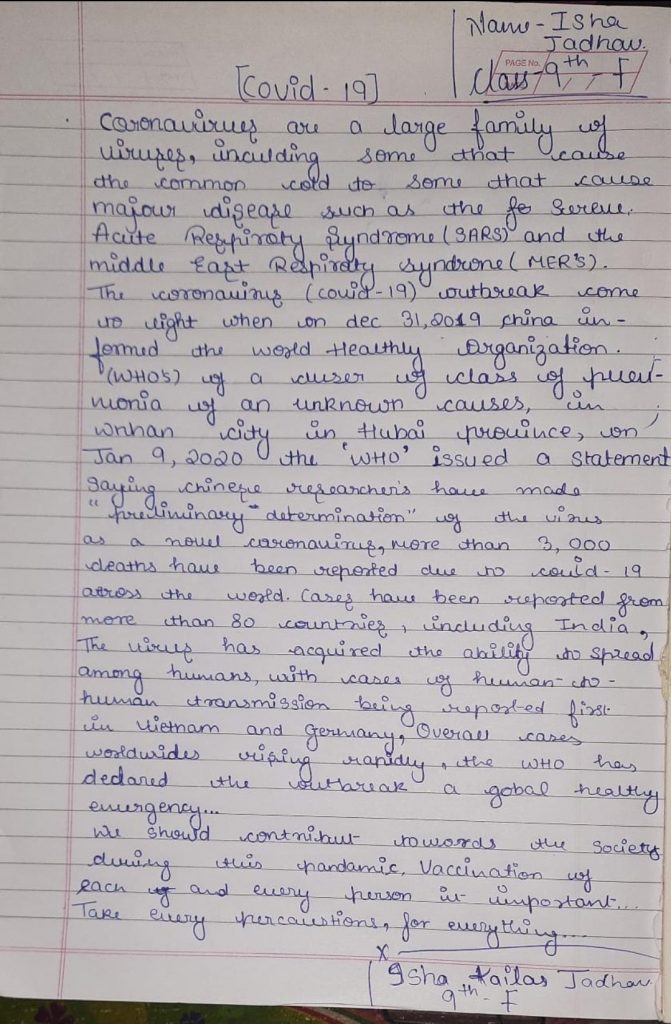 Name - Isha
Jadhav.
PAGE No.
Class - 9th - F
[Covid - 19]
Coronaviruses are a large family of
viruses, inculding some that cause
the common cold to some that cause
majour disease such as the Sereve.
Acute Respiroty Syndrome (SARS) and the
middle East Respiroty syndrone (MER'S).
The coronavirus (covid-19) outbreak come
to light when on dec 31, 2019 china in-
formed the world Healthly Organization.
(WHO'S) of a cluser of class of pneu-
monia of an unknown causes, in
wnhan city in Hubai province, on
Jan 9, 2020 the 'WHO' issued a statement
saying chinese researcher's have made
"preliminary - determination" of the virus
as a novel coronavirus, more than 3,000
deaths have been reported due to covid-19
across the world. Cases have been reported from
more than 80 countries, including India,
The virus has acquired the ability to spread
among humans, with cases of human-to-
human transmission being reported first
in Vietnam and Germany, Overall cases
worldwides rising rapidly, the WHO has
declared the outbreak a gobal healthy
emergency...
We should contribut towards the society
during this pandamic, Vaccination of
each and every person is important...
Take every percaustions, for everything....
x
Isha Kailas Jadhav
9th - F